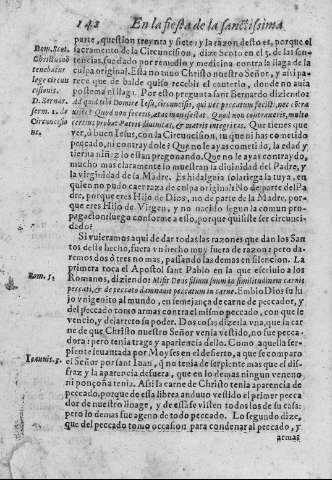 142 En la fiesta de la sanctissima
parte, question treynta y siete: y la razon desto es, porque el
sacramento de la Circuncision, dize Scoto en el 3. de las sen-
tencias, fue dado por remedio y medicina contra la llaga de la
culpa original. Esta no tuuo Christo nuestro Señor, y assi pa-
rece que de balde recibio el cauterio, donde no auia
postema ni llaga. Por esto pregunta san Bernardo diziendo:
Ad quid tibi Domine Iesu, circuncisio, qui nec peccatum fecisti, nec
Quod non contraxeris, multo
certius probat Patris diuinitas, & matris integritas. Que tienes que
ver, ò buen Iesus, con la Circuncision, tu que ni has cometido
pecado, ni contraydole? Que no le ayas cometido, la edad y
tierna niñez lo estan pregonando. Que no le ayas contraydo,
mucho mas claramente lo muestran la diuinidad del Padre, y
la virginidad de la Madre. Es hidalguia solariega la tuya, en
quien no pudo caer raza de culpa original: No de parte del Pa-
dre, porque eres Hijo de Dios, no de parte de la Madre, por-
que eres Hijo de Virgen, y no nacido segun la comun pro-
pagacion: luego conforme a esso, porque quisiste ser circunci-
dado?
Si vuieramos aqui de dar todas las razones que dan los San
tos deste hecho, fuera vn hecho muy fuera de razon: pero da-
remos dos ò tres no mas, passando las demas en silencio. La
primera toca el Apostol sant Pablo en la que escriuio a los
Romanos, diziendo: Misit Deus filium suum in similitudinem carnis
peccati, & de peccato damnauit peccatum in carne. Embio Dios su hi
jo vnigenito al mundo, en semejança de carne de pecador, y
del pecado tomo armas contra el mismo pecado, con que le
vencio, y dejarreto su poder. Dos cosas dize la vna, que la car
ne de que Christo nuestro Señor venia vestido, no fue pecca-
dora: pero tenia trage y apariencia dello. Como aquella ser-
piente leuantada por Moysen en el desierto, a que se comparo
el Señor por sant Ioan, q̃ no tenia de serpiente mas que el dis-
fraz y la apariencia de fuera, que en lo demas ningun veneno
ni ponçoña tenia. Assi la carne de Christo tenia apariencia de
peccado, porque de esta librea anduuo vestido el primer pecca
dor de nuestro linage, y de essa se visten todos los de su casa:
pero lo demas fue ageno de todo peccado. Lo segundo dize,
que del peccado tomo occasion para condenar al peccado, y
armas
Dom. Scot.
Christus no
tenebatur
lege circun
cisionis.
D. Bernar.
serm. 1. de
Circuncisio
ne.
Rom. 8.
Ioannis. 3.